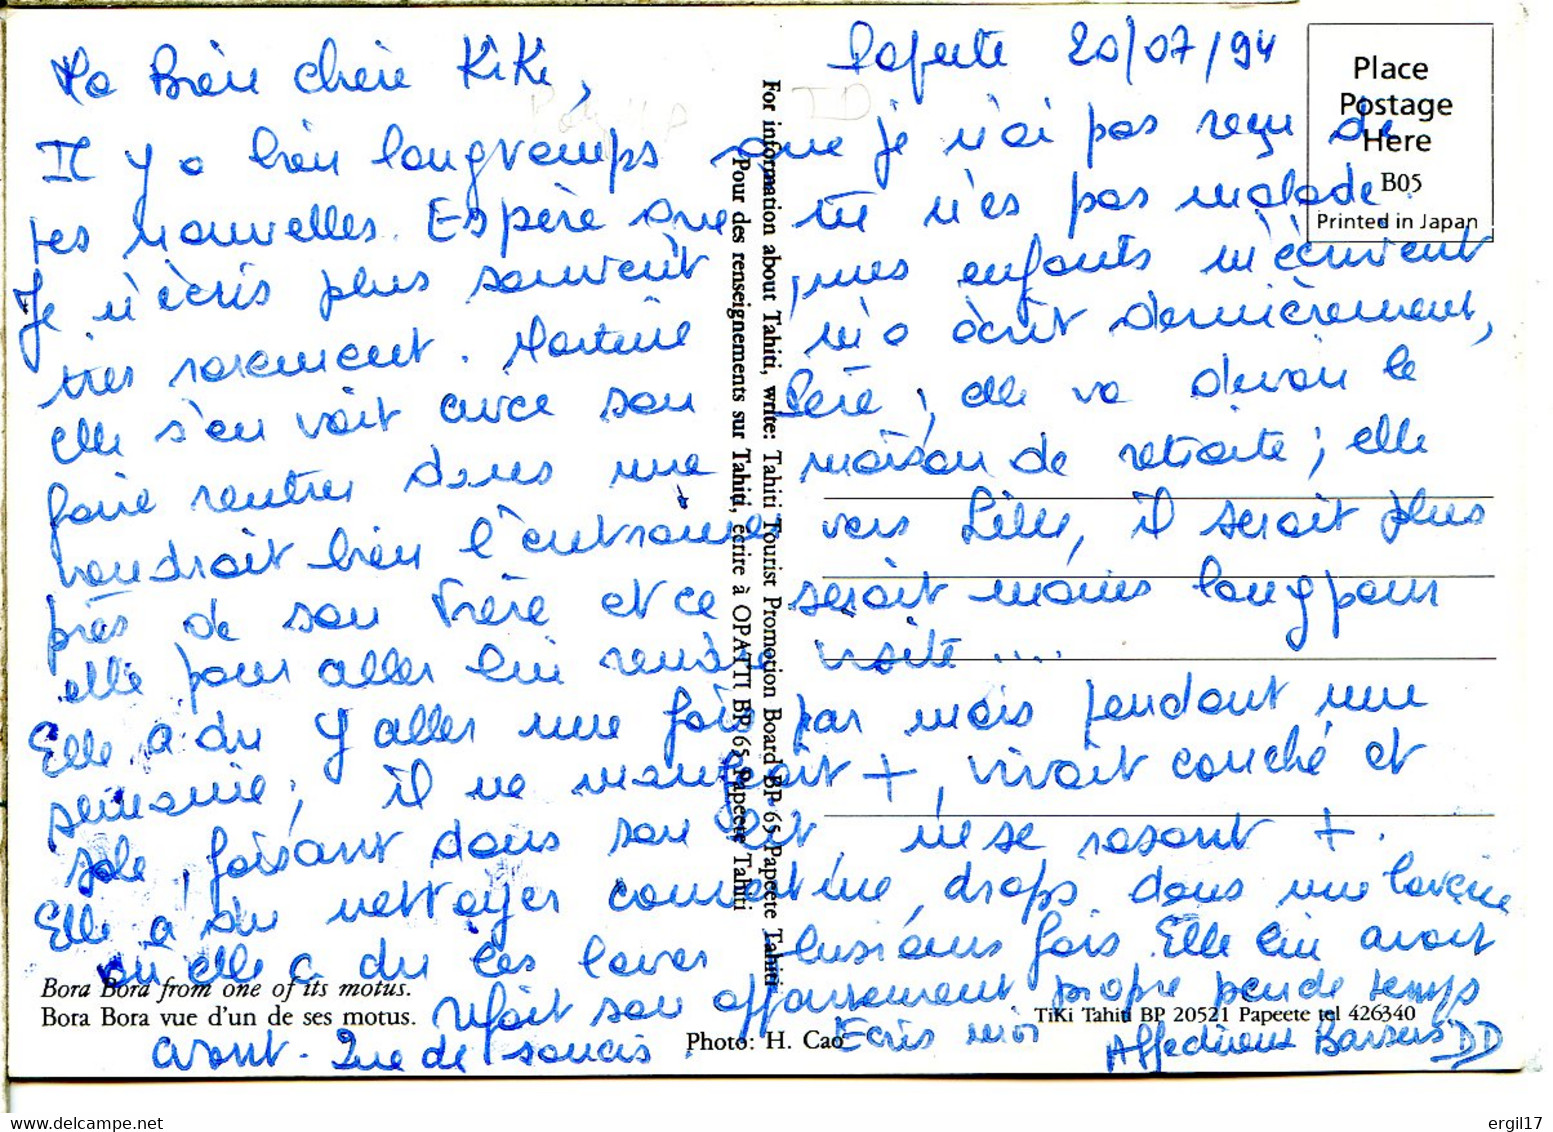 Papeete 20/07/94
Ma Bien chère KiKi,
Place
Postage
Here
B05
Printed in Japan
Il y a bien longtemps que je n'ai pas reçu de
tes nouvelles. Espère que tu n'es pas malade.
Je n'écris plus souvent, mes enfants m'écrivent
très rarement. Martine m'a écrit dernièrement,
elle s'en voit avec son Père ; elle va devoir le
faire rentrer dans une maison de retraite ; elle
voudrait bien l'entrainer vers Lille, il serait plus
près de son Frère et ce serait moins long pour
elle pour aller lui rendre visite ....
Elle a du y aller une fois par mois pendant une
semaine ; il ne mangeait +, vivait couché et
sale, faisant dans son lit, ne se rasant +.
Elle a du nettoyer comme draps dans une
qu'elle a du les laver plusieurs fois. Elle lui avait
son appartement propre peu de temps
avant. Que de soucis. Ecris moi
Affectueux Baisers DD
For information about Tahiti, write: Tahiti Tourist Promotion Board BP 65 Papeete Tahiti
Pour des renseignements sur Tahiti, écrire à OPATTI BP 65 Papeete Tahiti
Bora Bora from one of its motus.
Bora Bora vue d'un de ses motus.
Photo: H. Cao
TiKi Tahiti BP 20521 Papeete tel 426340
www.delcampe.net
ergil17